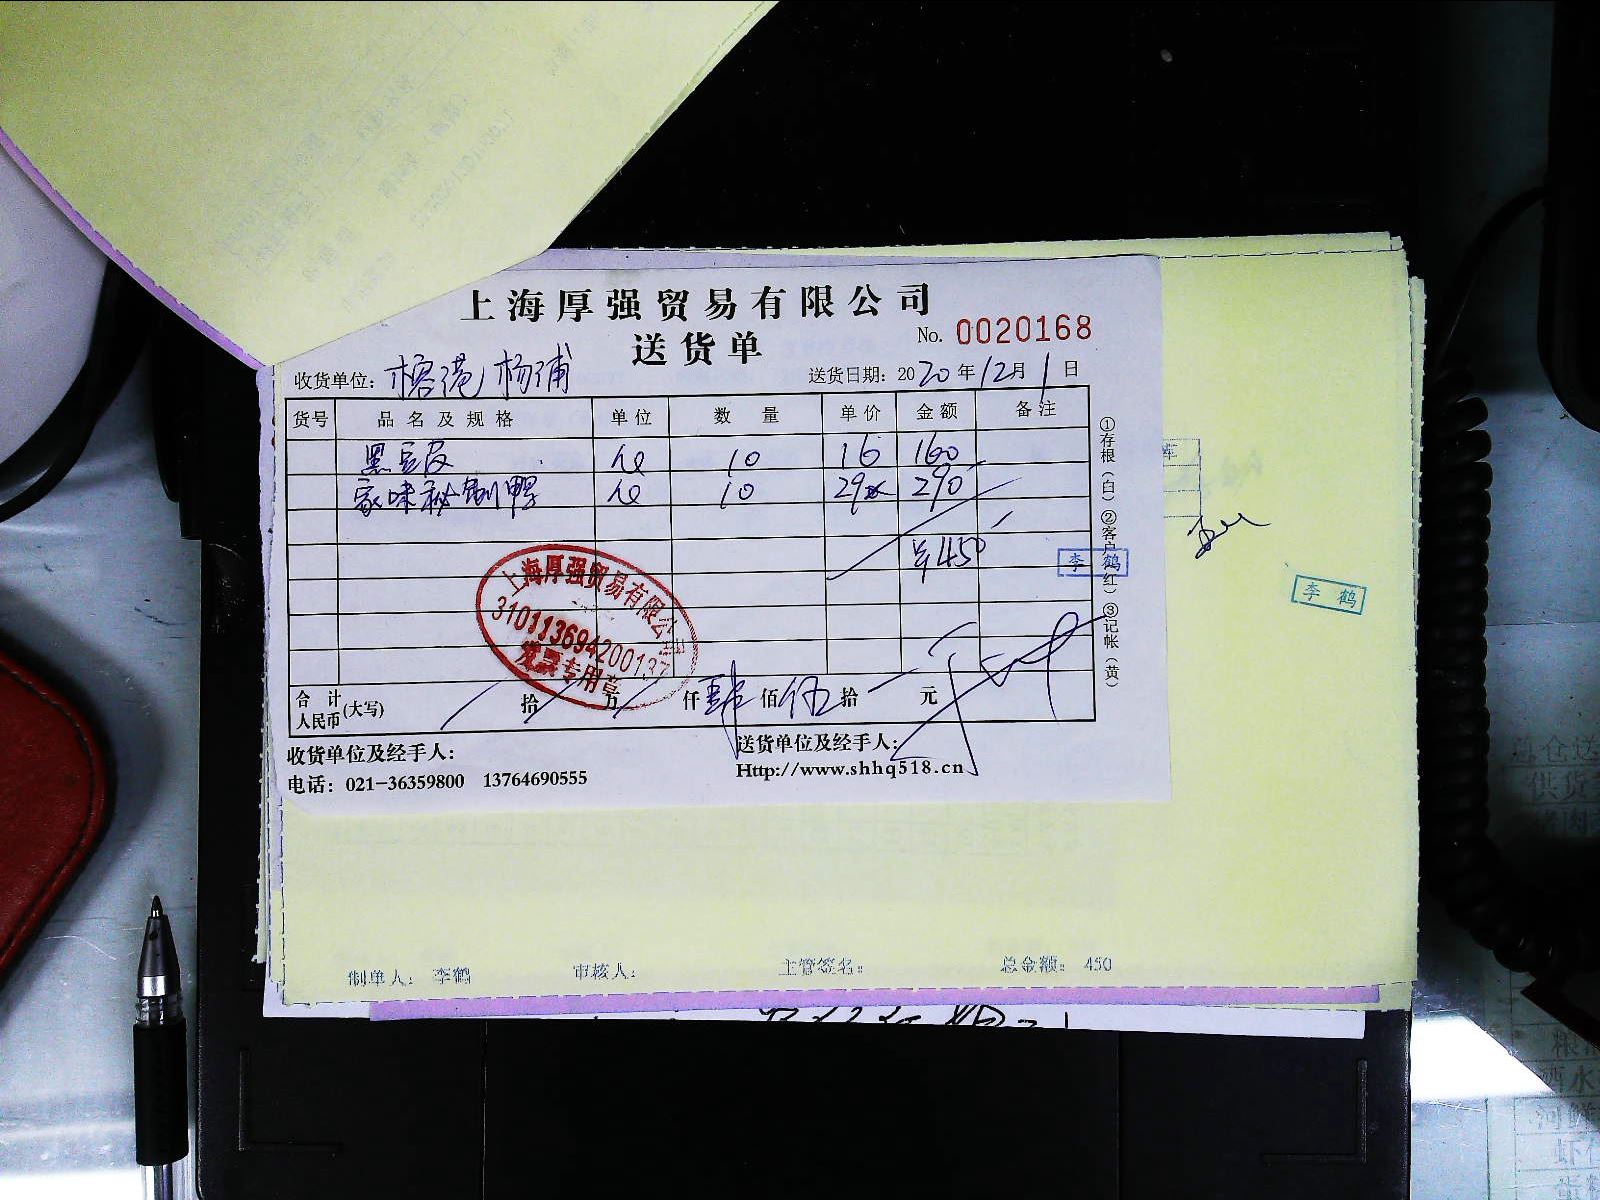 上海厚强贸易有限公司
送货单
No. 0020168
收货单位: 榕港杨浦
送货日期: 2020年12月1日
货号 品名及规格 单位 数量 单价 金额 备注
黑豆皮 10 16 160
家味秘制鸭 10 29 290
¥450
李鹤
李鹤
①存根(白)②客户(红)③记帐(黄)
上海厚强贸易有限公司
310113694200137
发票专用章
合计人民币(大写) 拾 万 仟 肆佰 伍拾 元
收货单位及经手人:
送货单位及经手人:
电话: 021-36359800 13764690555
Http://www.shhq518.cn
制单人: 李鹤 审核人: 主管签名: 总金额: 450
总仓送
供货
酒水
河鲜